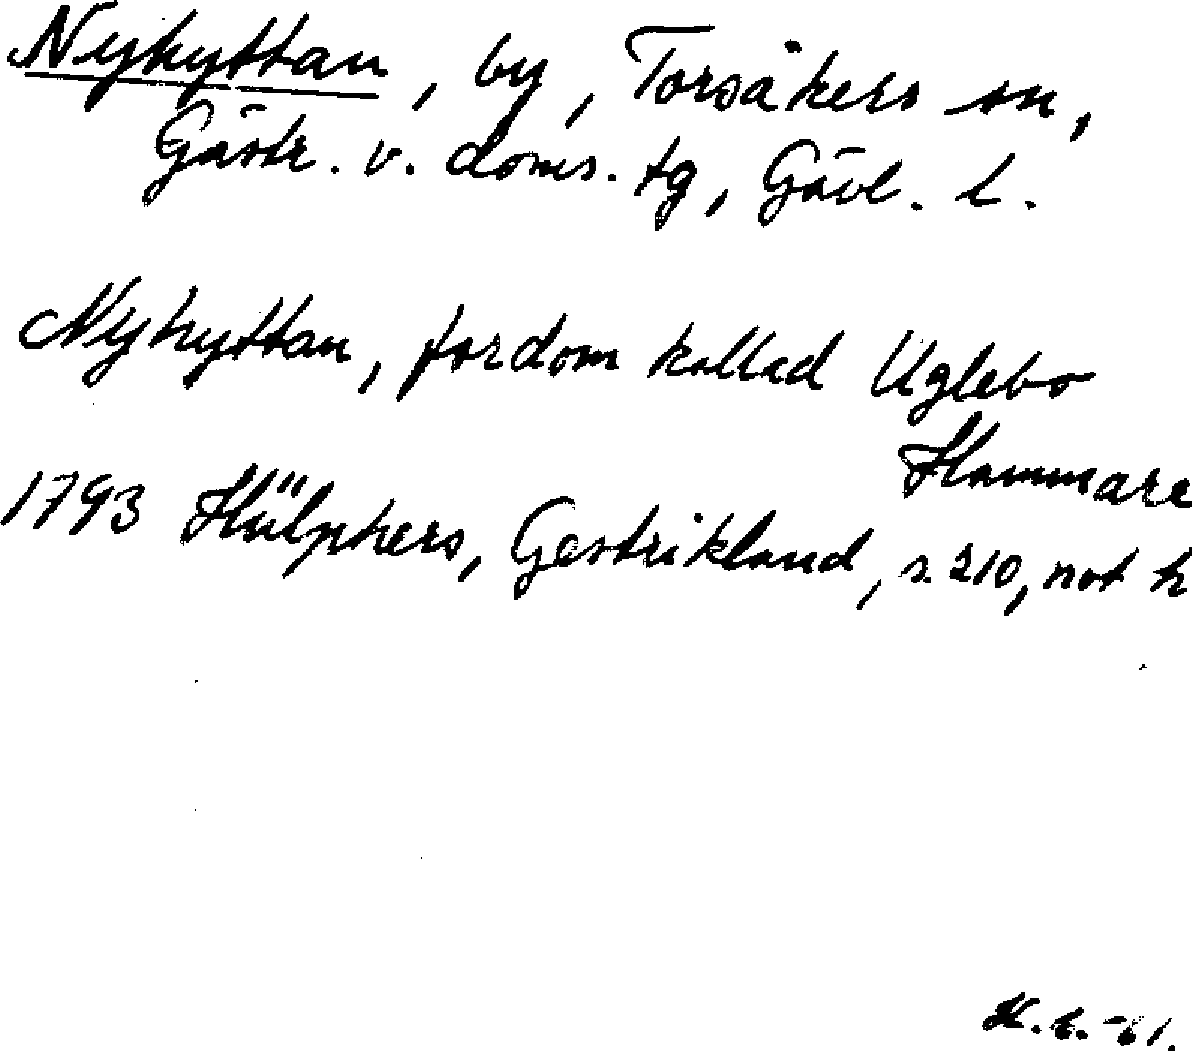 Nyhyttan, by, Torsåkers sn,
Gästr. v. doms. tg, Gävl. l.
Nyhyttan, fordom kallad Uglebo
Hammare
1793 Hülphers, Gestrikland, s. 210, not h